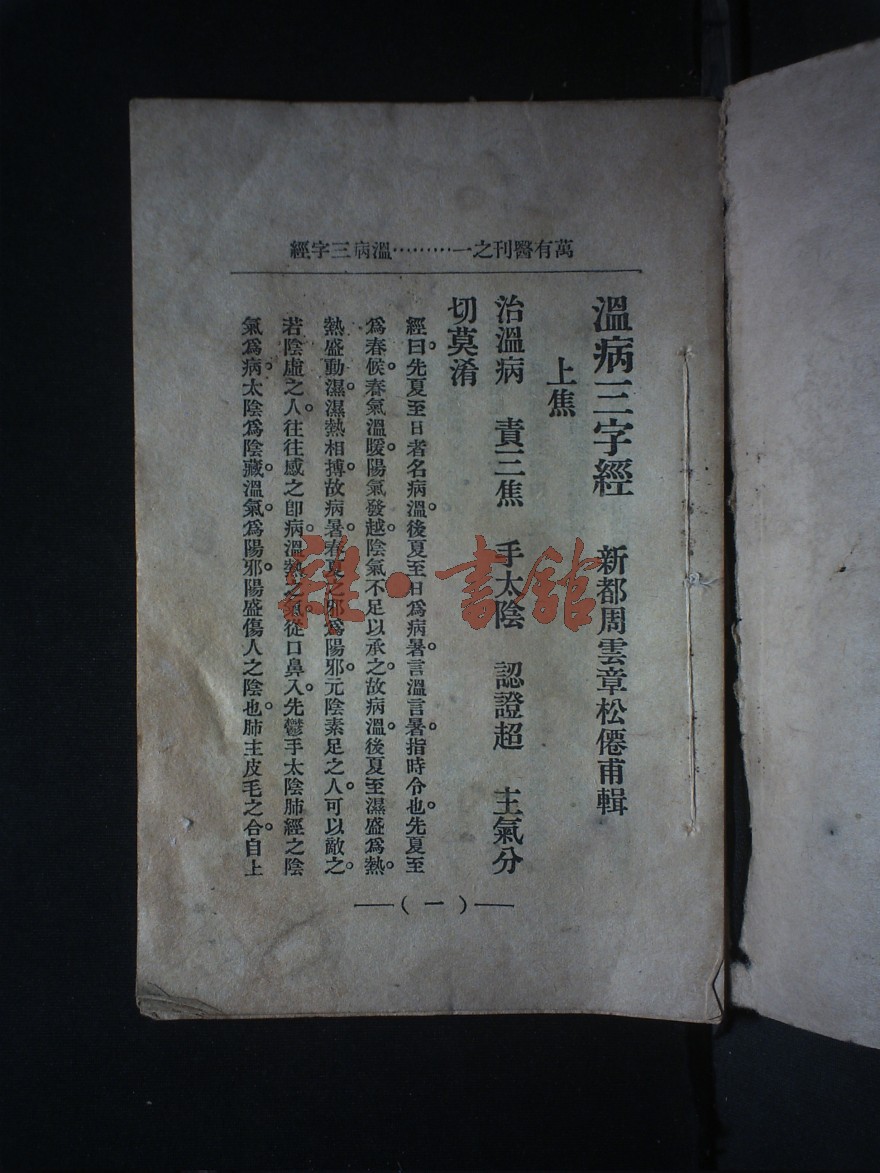 萬有醫刊之一………溫病三字經
溫病三字經　新都周雲章松僊甫輯
上焦
治溫病　責三焦　手太陰　認證超　主氣分
切莫淆
經曰先夏至日者名病溫。後夏至日爲病暑。言溫言暑。指時令也。先夏至
爲春候。春氣溫暖。陽氣發越。陰氣不足以承之。故病溫。後夏至濕盛爲熱。
熱盛動濕。濕熱相搏。故病暑。春夏之邪。爲陽邪。元陰素足之人。可以敵之。
若陰虛之人。往往感之卽病。溫熱之氣。從口鼻入。先鬱手太陰肺經之陰
氣爲病。太陰爲陰藏。溫氣爲陽邪。陽盛傷人之陰也。肺主皮毛之合。自上
（一）
雜·書館